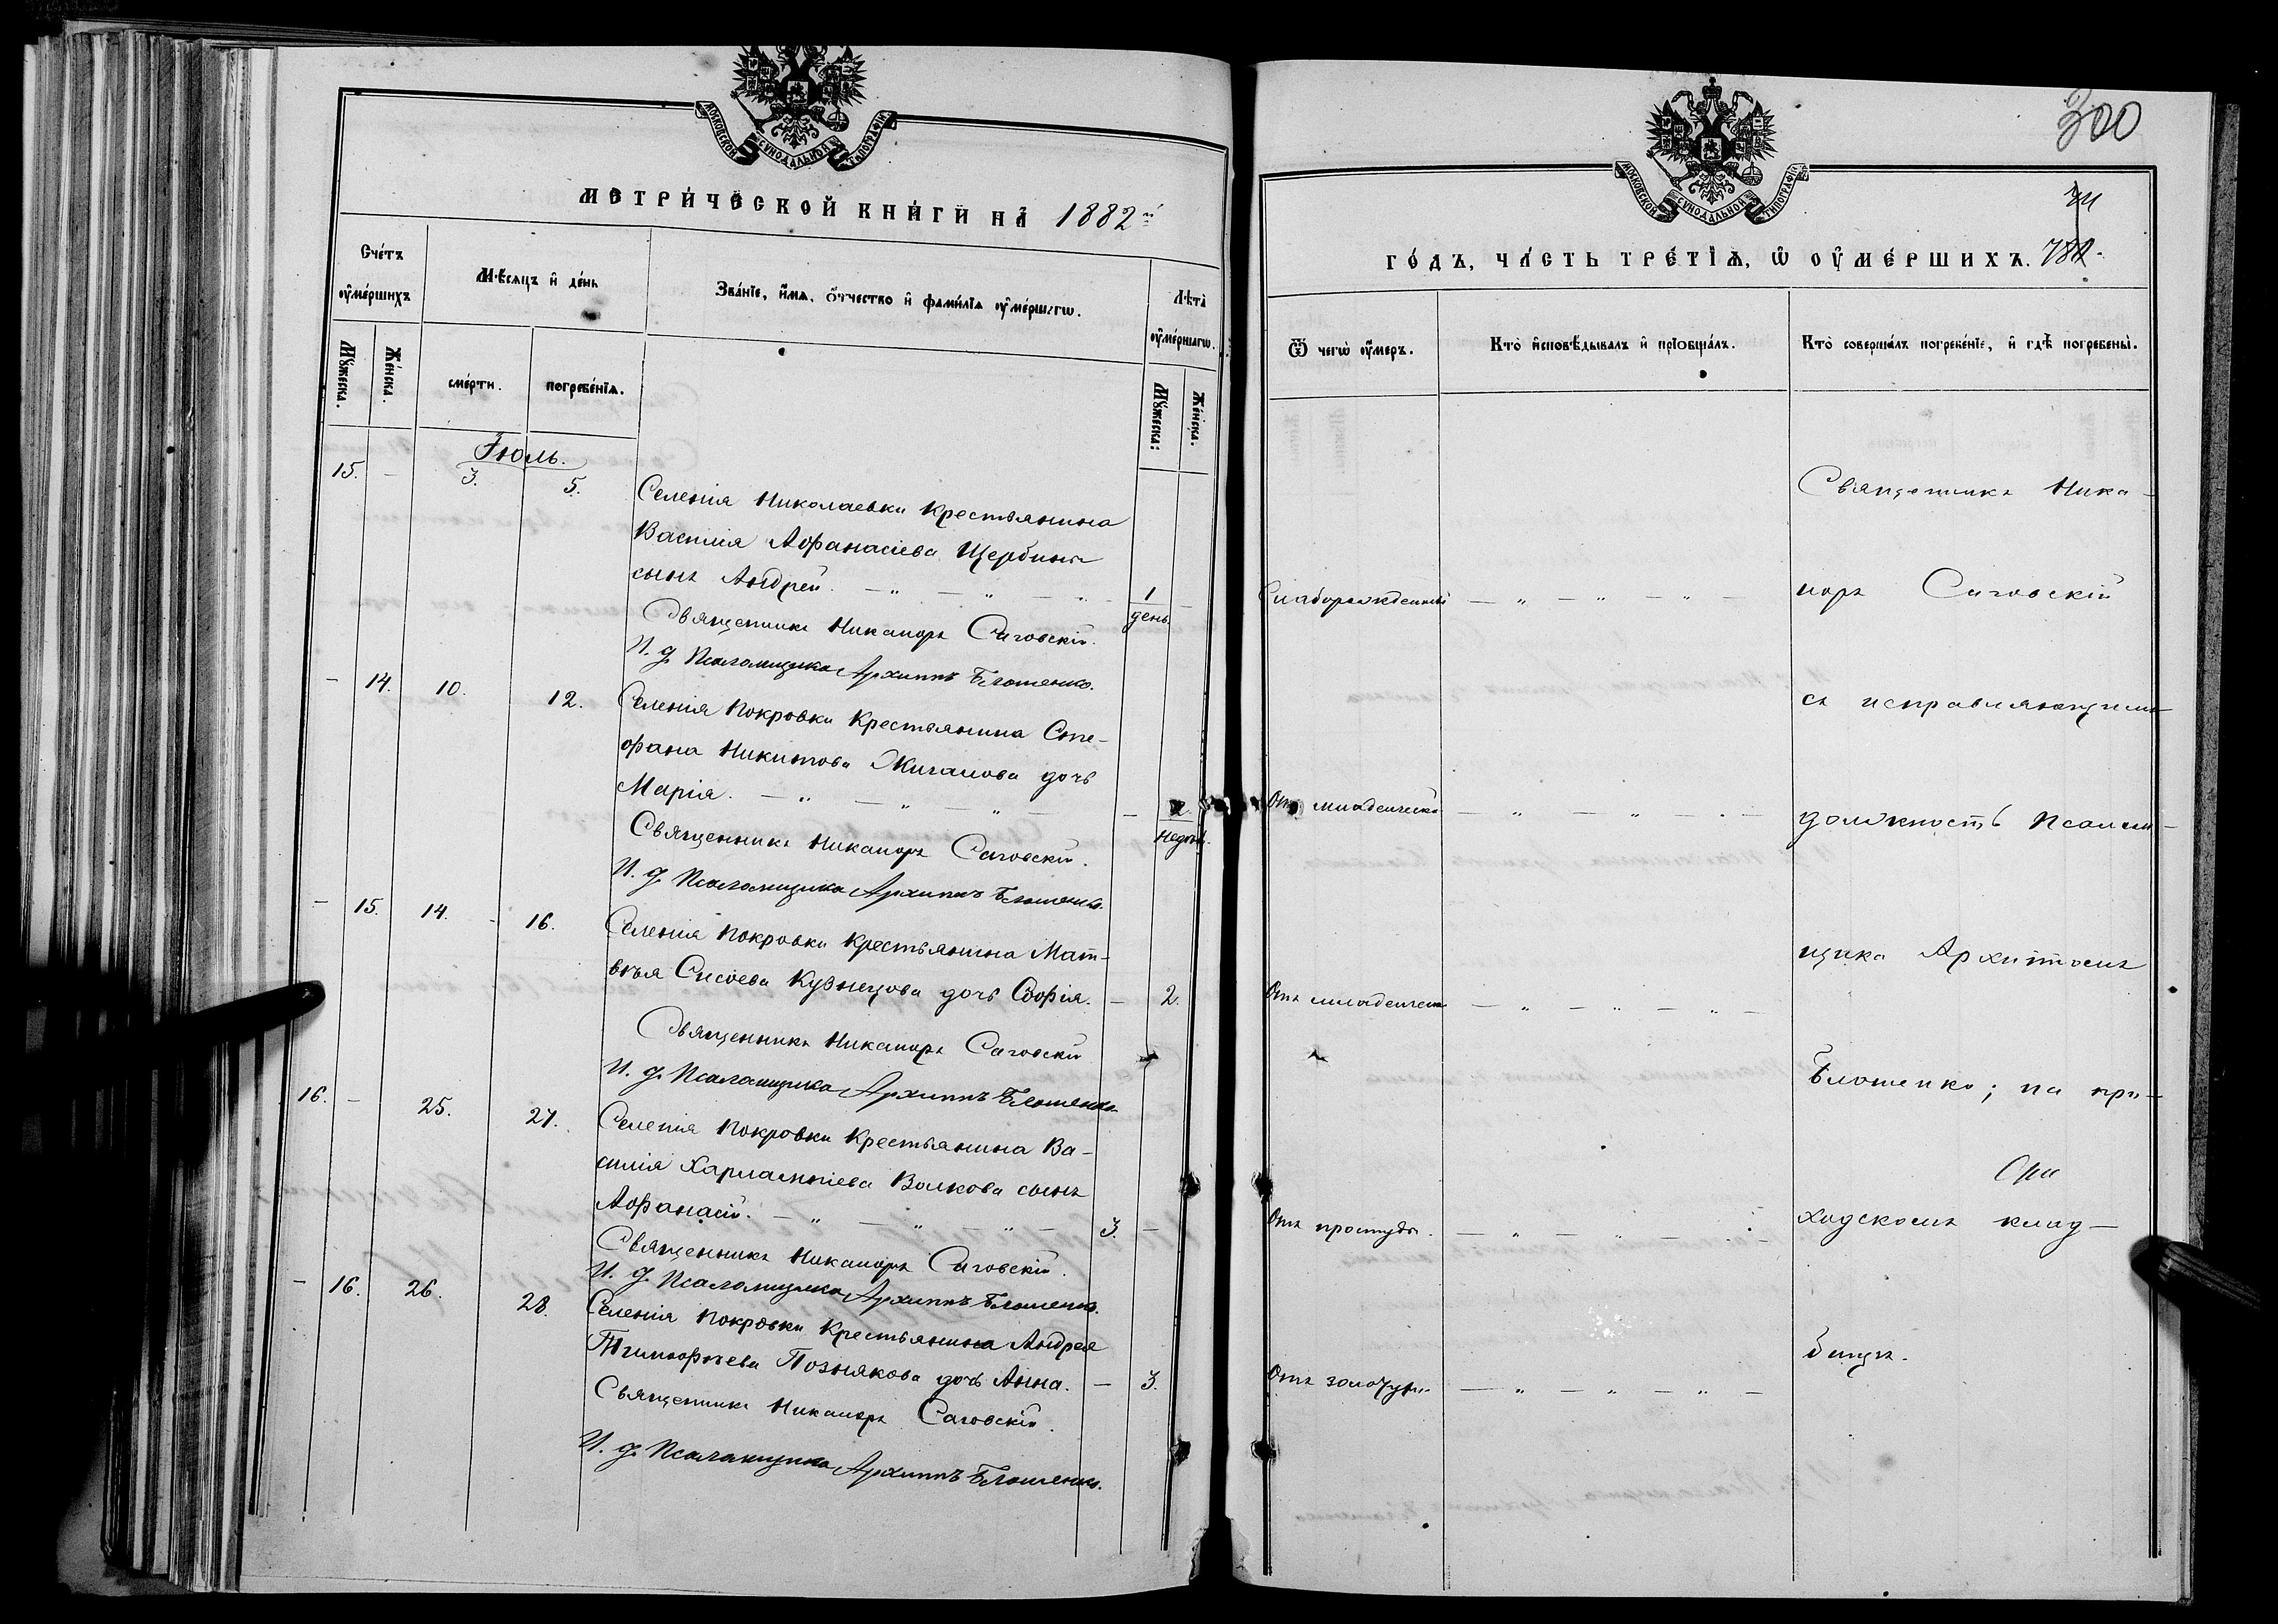 МОСКОВСКОЙ СѴНОДАЛЬНОЙ ТИПОГРАФІИ
МЕТРИ́ЧЕСКОЙ КНИ́ГИ НА̀ 1882й
Сче́тъ ᲂу҆ме́ршихъ
Мꙋ́жеска.
Же́нска.
Мѣ́сяцъ и҆ де́нь
сме́рти.
погребе́нїѧ.
Зва́нїе, и҆́мѧ, ѻ҆́тчество и҆ фами́лїѧ ᲂу҆ме́ршагѡ.
Лѣ̀та ᲂу҆ме́ршагѡ.
Мꙋ́жеска:
Же́нска.
Іюль.
15. - 3. 5. Селенія Николаевки Крестьянина
Василія Афанасіева Щербины
сынъ Андрей. — „ — „ — „ 1 день. -
Священникъ Никаноръ Саговскій.
И. д. Псаломщика Архиппъ Блошенко.
- 14. 10. 12. Селенія Покровки Крестьянина Сте-
фана Никитова Жиганова дочь
Марія. — „ — „ — „ — - недѣл.
Священникъ Никаноръ Саговскій.
И. д. Псаломщика Архиппъ Блошенко.
- 15. 14. - 16. Селенія Покровки Крестьянина Мат-
вѣя Сисоева Кузнецова дочь Софія. - 2.
Священникъ Никаноръ Саговскій
И. д. Псаломщика Архиппъ Блошенко
16. - 25. 27. Селенія Покровки Крестьянина Ва-
силія Харлампіева Волкова сынъ
Афанасій. — „ — „ — „ — 3. -
Священникъ Никаноръ Саговскій.
И. д. Псаломщика Архиппъ Блошенко.
- 16. 26. 28. Селенія Покровки Крестьянина Андрея
Тимофѣева Познякова дочь Анна. - 3.
Священникъ Никаноръ Саговскій.
И. д. Псаломщика Архиппъ Блошенко.
300
МОСКОВСКОЙ СѴНОДАЛЬНОЙ ТИПОГРАФІИ
ГО́ДЪ, ЧА́СТЬ ТРЕ́ТЇѦ, Ѡ҆ ОУ҆МЕ́РШИХЪ.
Ѿ чегѡ̀ ᲂу҆́меръ.
Кто̀ и҆сповѣ́дывалъ и҆ прїѡбща́лъ.
Кто̀ соверша́лъ погребе́нїе, и҆ гдѣ̀ погребены̀.
Священникъ Ника-
Слаборожденный — „ — „ — „ — норъ Саговскій
съ исправляющимъ
Отъ младенческ. — „ — „ — „ — должность Псалом-
щика Архипомъ
Отъ младенческ. — „ — „ — „ —
Блошенко; на при-
при
Отъ простуды. — „ — „ — ходскомъ клад-
бищѣ.
Отъ золотухи. — „ — „ — „ —